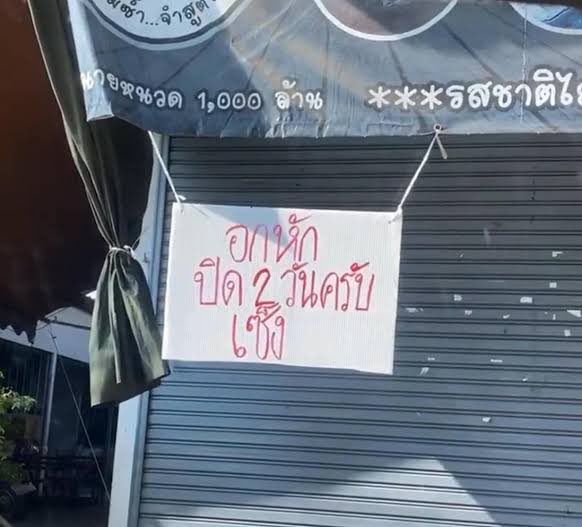 นายหนวด 1,000 ล้าน ***รสชาติ
อกหัก
ปิด 2 วันครับ
เซ็ง